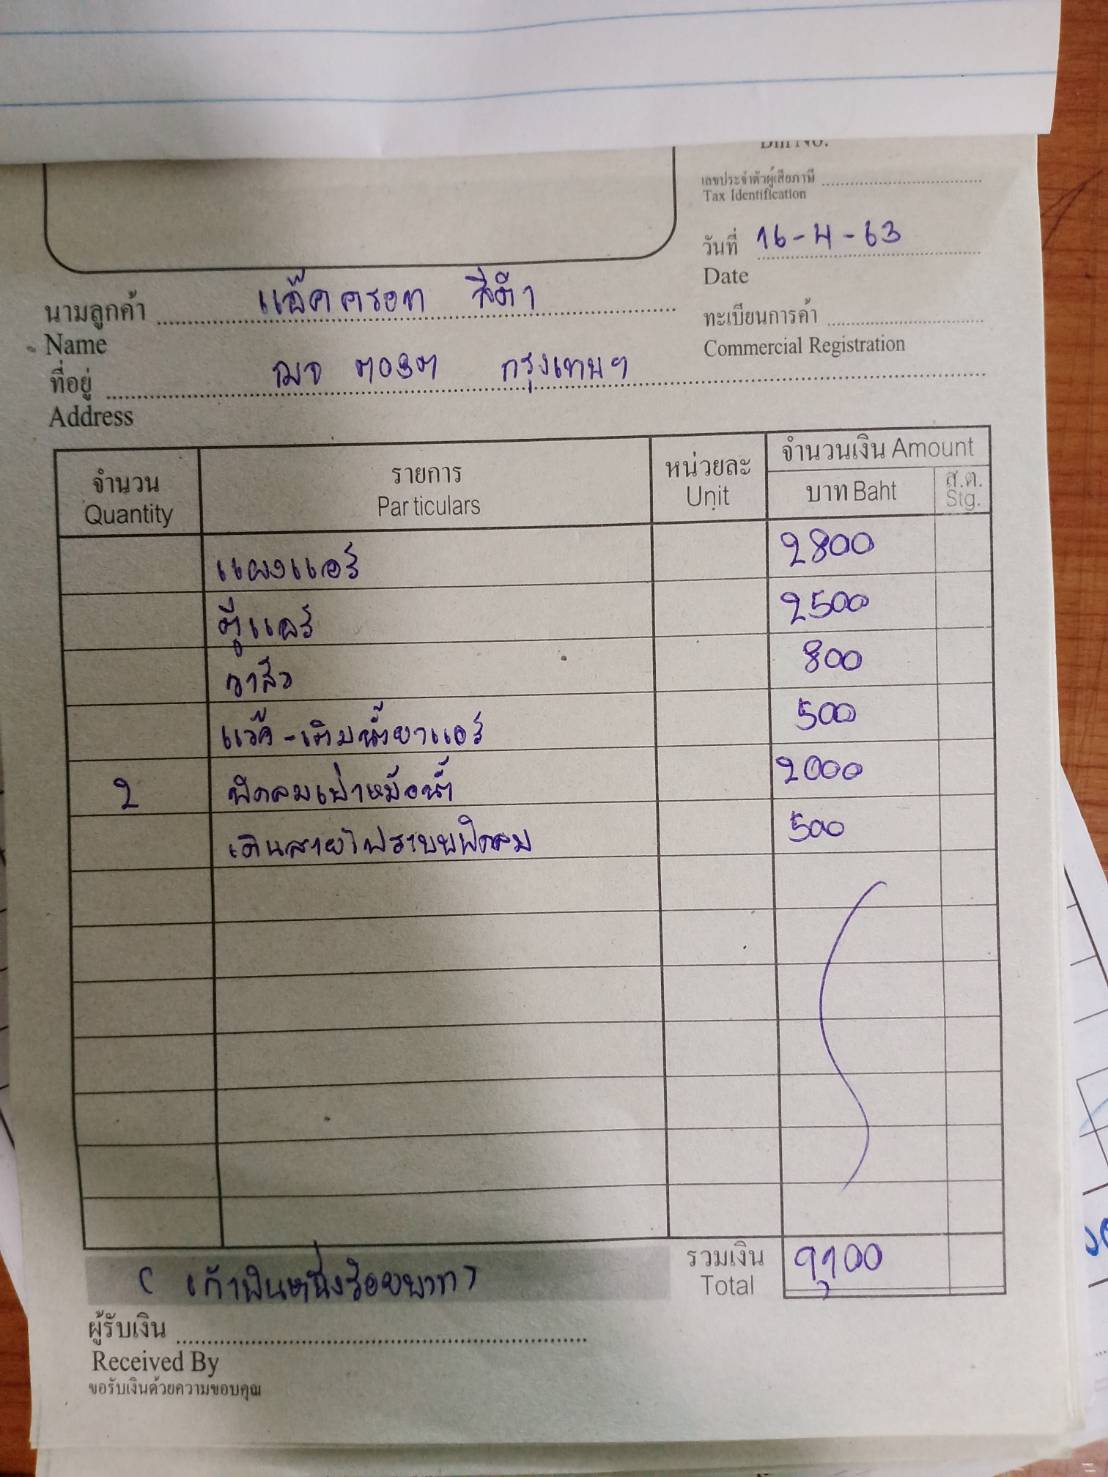 เลขประจำตัวผู้เสียภาษี
Tax Identification
วันที่ 16-4-63
Date
นามลูกค้า แอ๊คครอท สีดำ
Name
ทะเบียนการค้า
Commercial Registration
ที่อยู่ ฌจ ๓๐๖๓ กรุงเทพฯ
Address
จำนวน รายการ หน่วยละ จำนวนเงิน Amount
Quantity Particulars Unit บาท Baht ส.ต. Stg.
แผงแอร์ 2800
ตู้แอร์ 2500
วาล์ว 800
แว๊ค-เติมน้ำยาแอร์ 500
2 พัดลมเป่าหม้อน้ำ 2000
เดินสายไฟระบบพัดลม 500
(เก้าพันหนึ่งร้อยบาท) รวมเงิน 9,100
Total
ผู้รับเงิน
Received By
ขอรับเงินด้วยความขอบคุณ